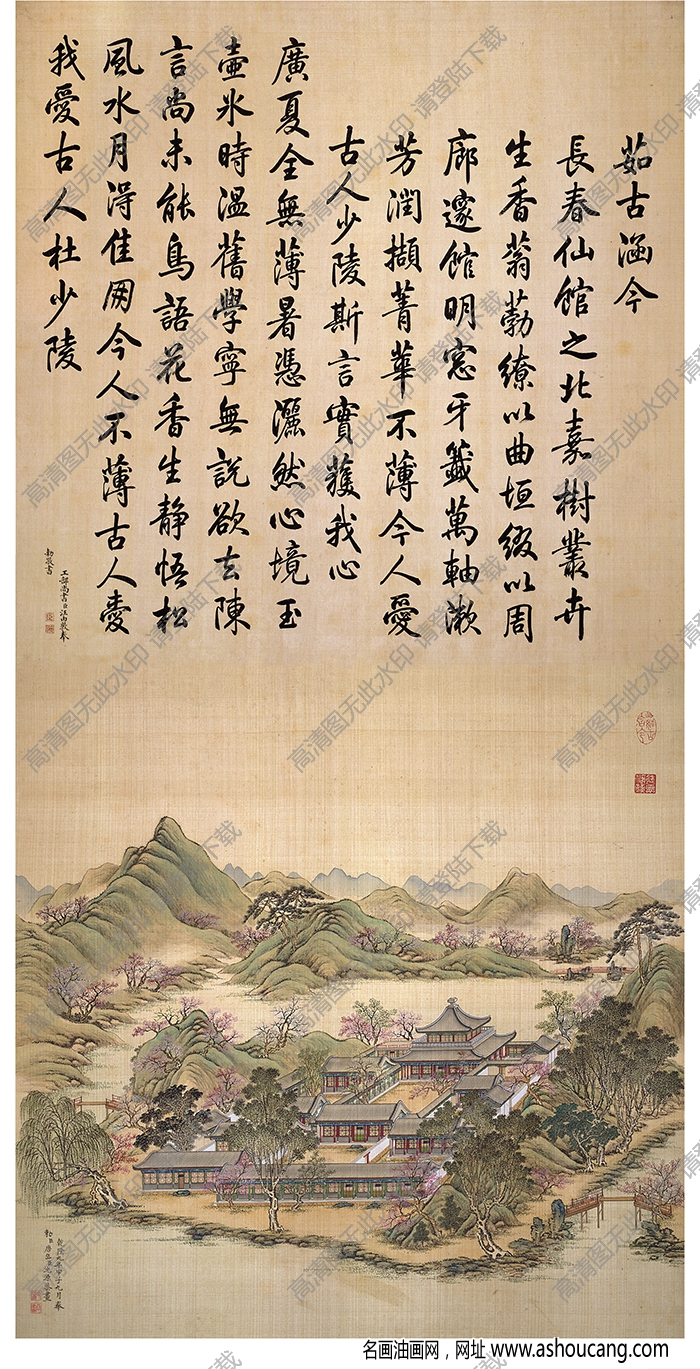 茹古涵今
長春仙館之北嘉樹叢卉
生香蓊葧繚以曲垣綴以周
廊邃館明窓牙籤萬軸漱
芳潤擷菁華不薄今人愛
古人少陵斯言實獲我心
廣夏全無薄暑憑灑然心境玉
壺氷時溫舊學寧無說欲去陳
言尚未能鳥語花香生靜悟松
風水月淂佳朋今人不薄古人愛
我愛古人杜少陵
工部尚書臣汪由敦奉
勅敬書
乾隆九年甲子九月奉
勅臣唐岱臣沈源恭畫
高清图无此水印 请登陆下载
名画油画网，网址 www.ashoucang.com